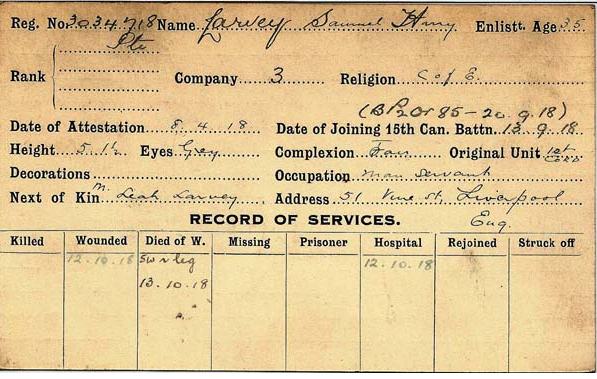 Reg. No. 3034718 Name Larvey Samuel Hny Enlistt. Age 35
Pte
Rank Company 3 Religion C of E.
(B P2 Or 85-20.9.18)
Date of Attestation 8.4.18 Date of Joining 15th Can. Battn. 13.9.18
Height 5.1½ Eyes Grey Complexion Fair Original Unit 1st
Decorations Occupation man servant
Next of Kin M. Leah Larvey Address 51 Vine St. Liverpool
Eng.
RECORD OF SERVICES.
Killed Wounded Died of W. Missing Prisoner Hospital Rejoined Struck off
12.10.18 SW r leg 12.10.18
13.10.18